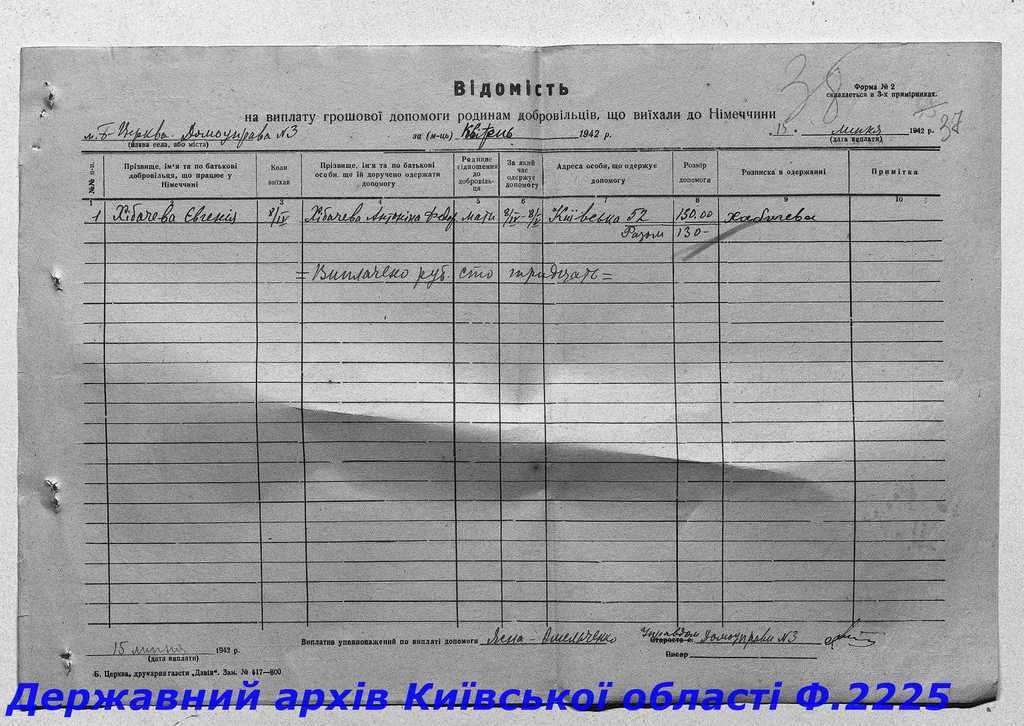 38
Форма № 2
складається в 3-х примірниках.
Відомість
на виплату грошової допомоги родинам добровільців, що виїхали до Німеччини
37
м. Б-Церква. Домоуправа N3 за (м-ць) Квітень 1942 р. 15. липня 1942 р.
(назва села, або міста) (дата виплати)
№№ п-п. Прізвище, ім'я та по батькові добровільця, що працює у Німеччині Коли виїхав Прізвище, ім'я та по батькові особи, що їй доручено одержати допомогу Родинне відношення до добровільця За який час одержує допомогу Адреса особи, що одержує допомогу Розмір допомога Розписка в одержанні Примітка
1 3 5 6 7 8 9 10
1 Хібачева Євгенія 8/IV Хібачева Антоніна Федор. мати 8/IV-8/V Київська 52 130.00 Хабачева
Разом 130-
=Виплачено руб. сто тридцать=
15 липня 1942 р.
(дата виплати)
Виплатив уповноважений по виплаті допомоги Омельченко Управдом Домоуправи N3
Староста с.
Писар
Б. Церква, друкарня газети „Дзвін". Зам. № 617—800
Державний архів Київської області Ф.2225